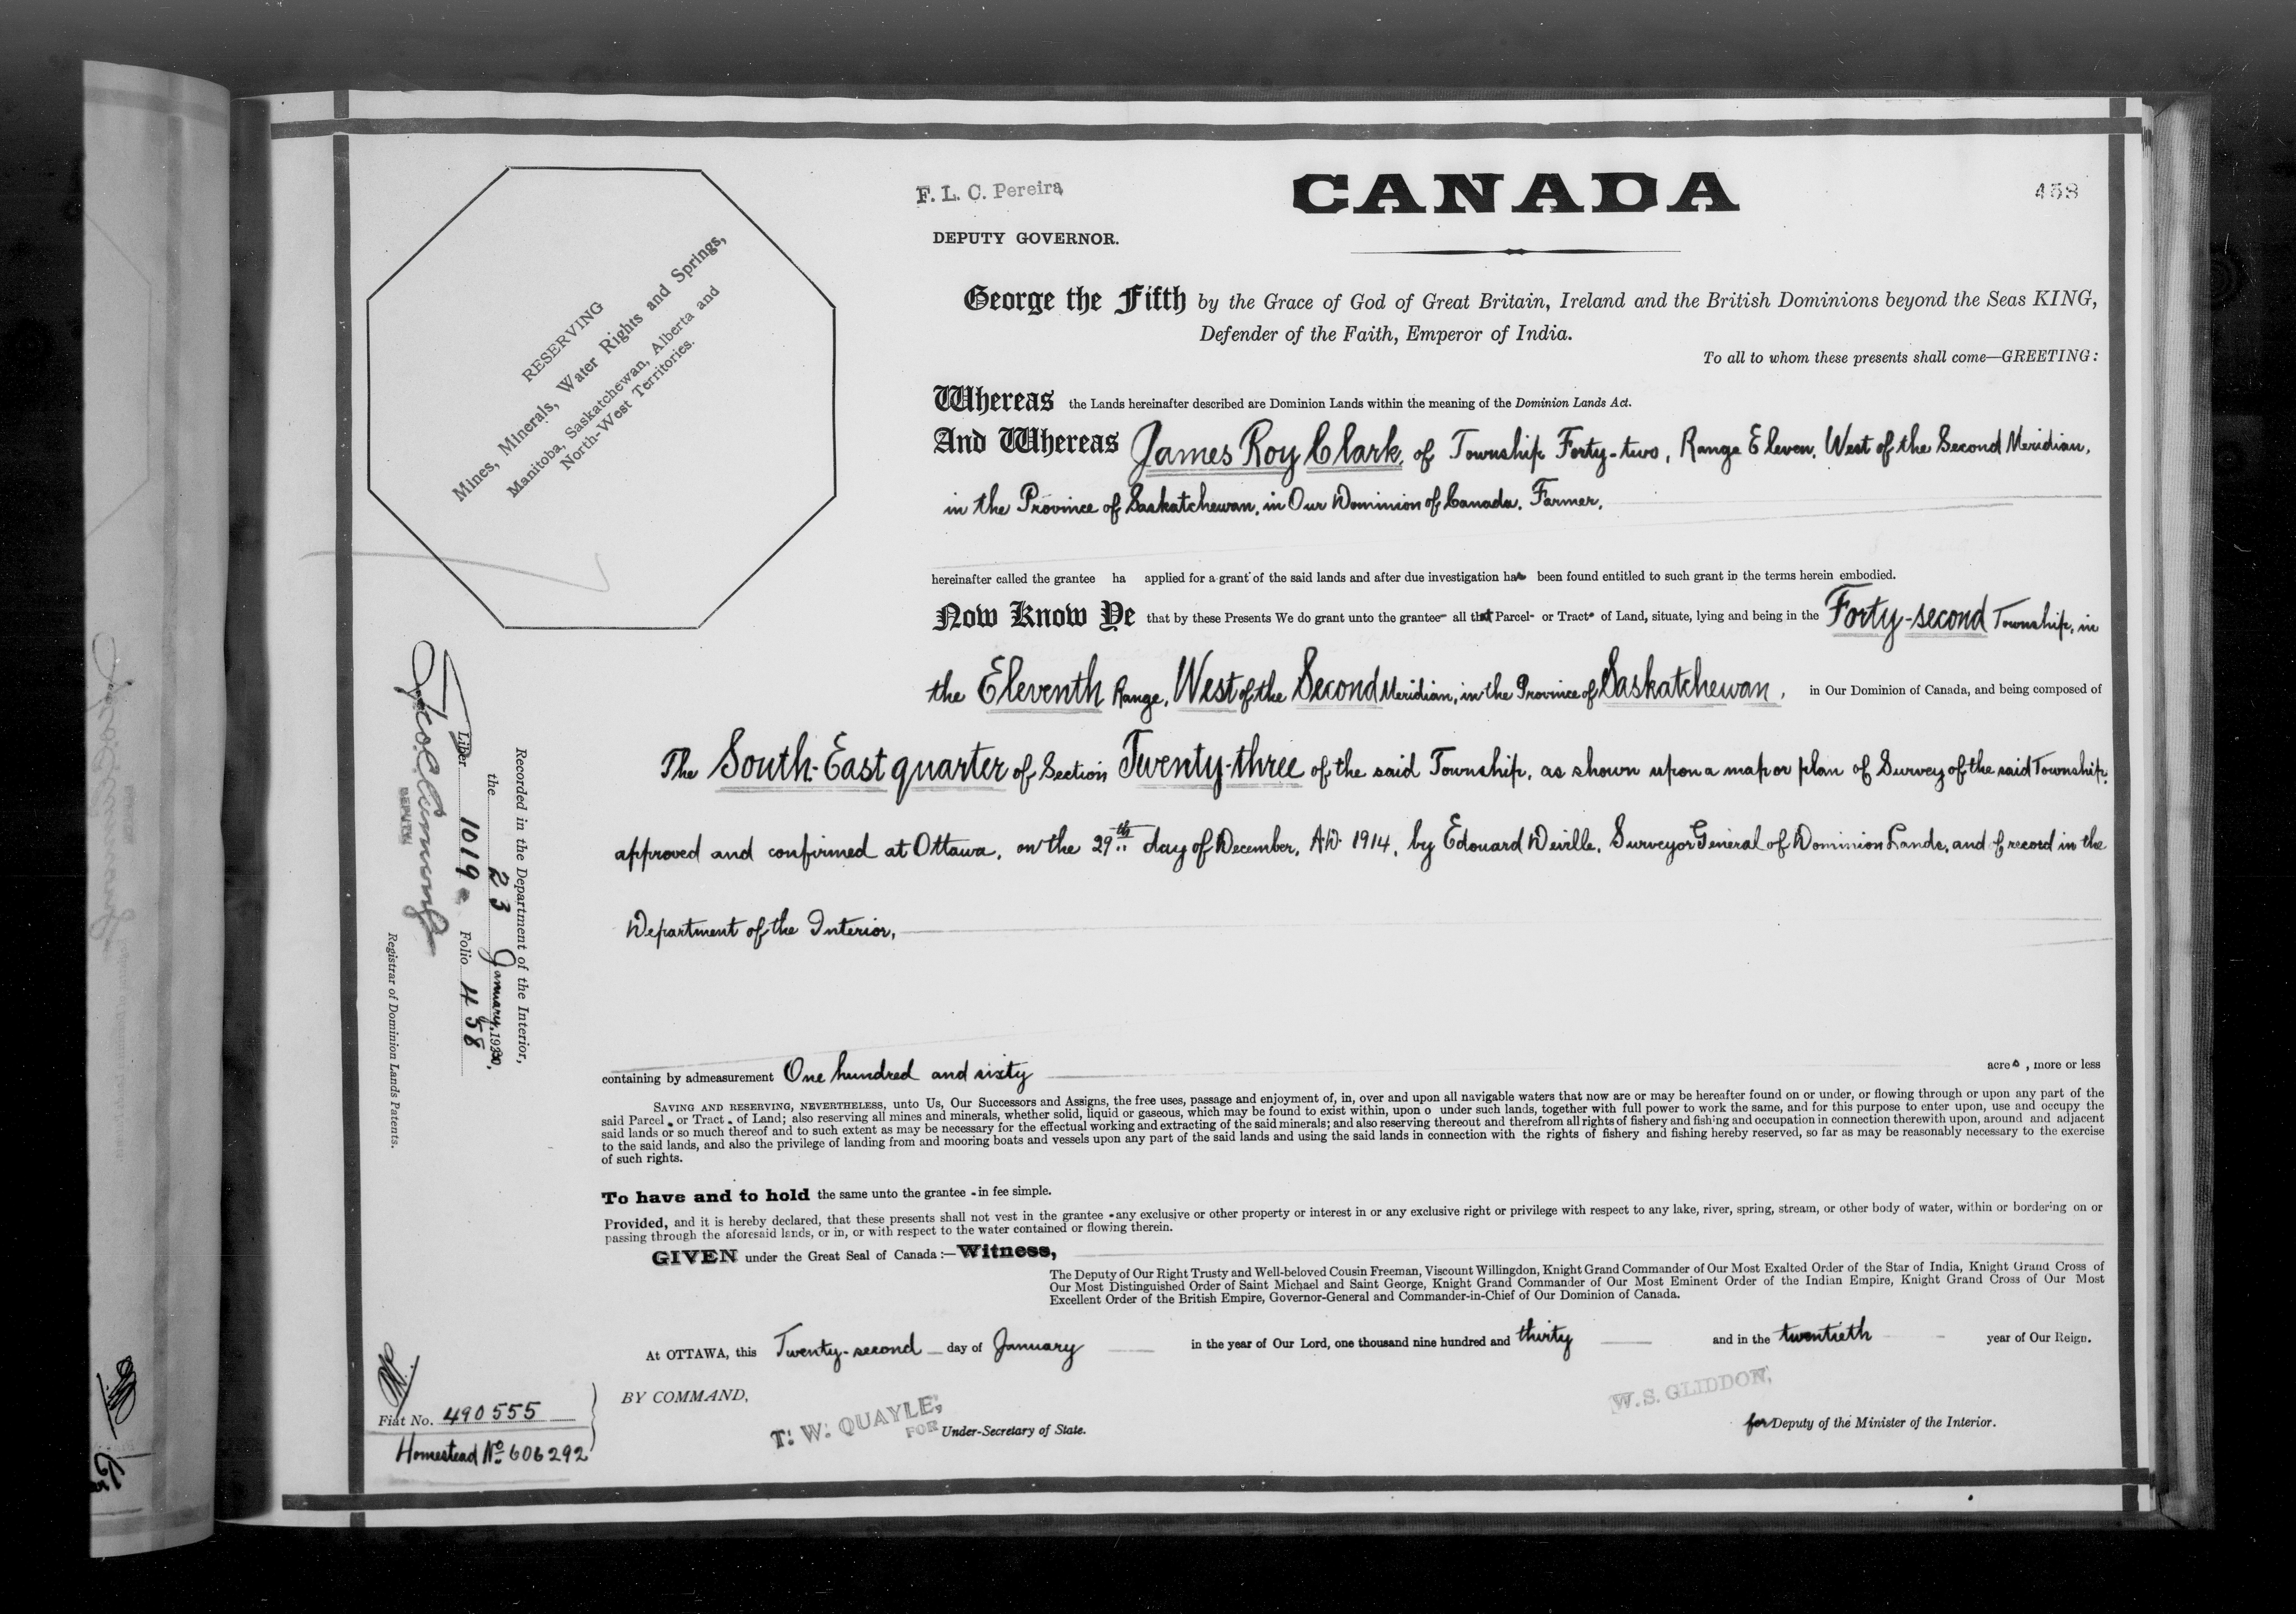 F. L. C. Pereira
CANADA
458
DEPUTY GOVERNOR.
RESERVING
Mines, Minerals, Water Rights and Springs,
Manitoba, Saskatchewan, Alberta and
North-West Territories.
George the Fifth by the Grace of God of Great Britain, Ireland and the British Dominions beyond the Seas KING,
Defender of the Faith, Emperor of India.
To all to whom these presents shall come—GREETING:
Whereas the Lands hereinafter described are Dominion Lands within the meaning of the Dominion Lands Act.
And Whereas James Roy Clark, of Township Forty-two, Range Eleven, West of the Second Meridian,
in the Province of Saskatchewan, in Our Dominion of Canada, Farmer,
hereinafter called the grantee ha applied for a grant of the said lands and after due investigation has been found entitled to such grant in the terms herein embodied.
Now Know Ye that by these Presents We do grant unto the grantee all that Parcel or Tract of Land, situate, lying and being in the Forty-second Township, in
the Eleventh Range, West of the Second Meridian, in the Province of Saskatchewan, in Our Dominion of Canada, and being composed of
The South-East quarter of Section Twenty-three of the said Township, as shown upon a map or plan of Survey of the said Township,
approved and confirmed at Ottawa, on the 29th day of December, A.D. 1914, by Edouard Deville, Surveyor General of Dominion Lands, and of record in the
Department of the Interior,
Recorded in the Department of the Interior,
the 23 January, 1930,
Liber 1019 Folio 458
DEPUTY
Registrar of Dominion Lands Patents.
containing by admeasurement One hundred and sixty acres, more or less
SAVING AND RESERVING, NEVERTHELESS, unto Us, Our Successors and Assigns, the free uses, passage and enjoyment of, in, over and upon all navigable waters that now are or may be hereafter found on or under, or flowing through or upon any part of the
said Parcel or Tract of Land; also reserving all mines and minerals, whether solid, liquid or gaseous, which may be found to exist within, upon o under such lands, together with full power to work the same, and for this purpose to enter upon, use and occupy the
said lands or so much thereof and to such extent as may be necessary for the effectual working and extracting of the said minerals; and also reserving thereout and therefrom all rights of fishery and fishing and occupation in connection therewith upon, around and adjacent
to the said lands, and also the privilege of landing from and mooring boats and vessels upon any part of the said lands and using the said lands in connection with the rights of fishery and fishing hereby reserved, so far as may be reasonably necessary to the exercise
of such rights.
To have and to hold the same unto the grantee in fee simple.
Provided, and it is hereby declared, that these presents shall not vest in the grantee any exclusive or other property or interest in or any exclusive right or privilege with respect to any lake, river, spring, stream, or other body of water, within or bordering on or
passing through the aforesaid lands, or in, or with respect to the water contained or flowing therein.
GIVEN under the Great Seal of Canada:—Witness,
The Deputy of Our Right Trusty and Well-beloved Cousin Freeman, Viscount Willingdon, Knight Grand Commander of Our Most Exalted Order of the Star of India, Knight Grand Cross of
Our Most Distinguished Order of Saint Michael and Saint George, Knight Grand Commander of Our Most Eminent Order of the Indian Empire, Knight Grand Cross of Our Most
Excellent Order of the British Empire, Governor-General and Commander-in-Chief of Our Dominion of Canada.
At OTTAWA, this Twenty-second day of January in the year of Our Lord, one thousand nine hundred and thirty and in the twentieth year of Our Reign.
BY COMMAND,
T. W. QUAYLE,
FOR Under-Secretary of State.
W. S. GLIDDON,
for Deputy of the Minister of the Interior.
Fiat No. 490555
Homestead No 606292